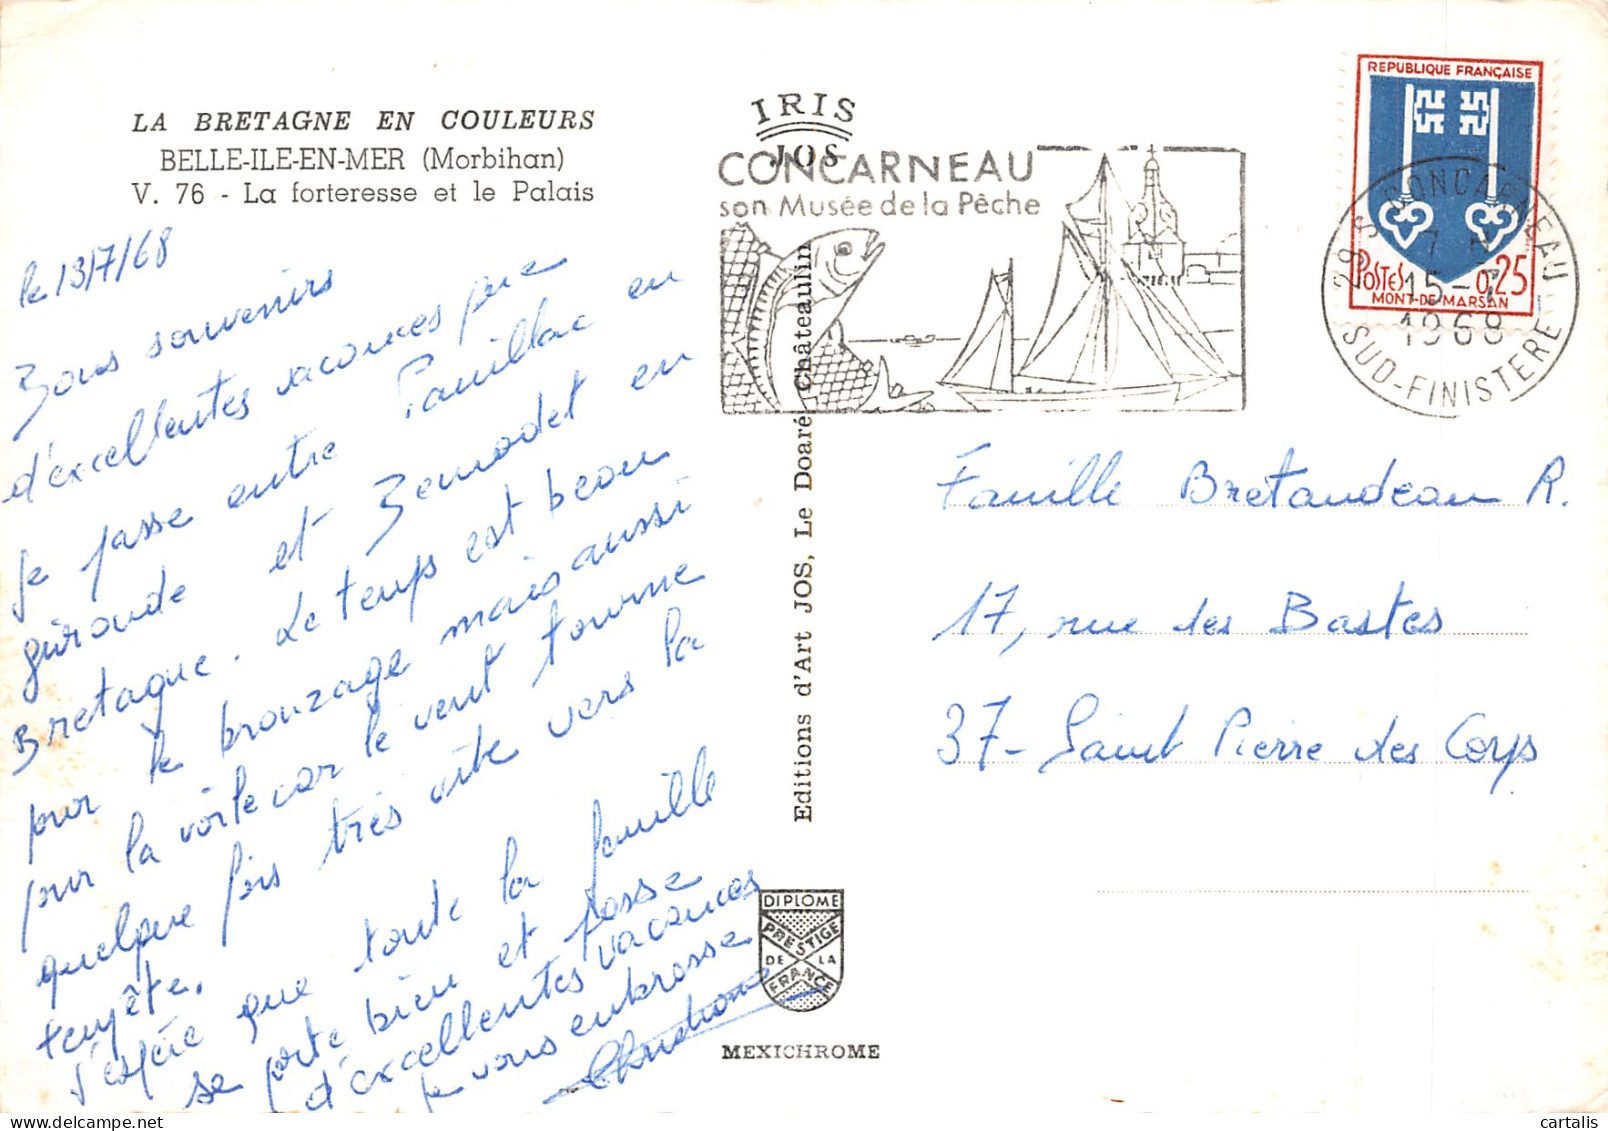 LA BRETAGNE EN COULEURS
BELLE-ILE-EN-MER (Morbihan)
V. 76 - La forteresse et le Palais
le 13/7/68
Bons souvenirs
d'excellentes vacances que
je passe entre Pauillac en
gironde et Benodet en
Bretagne. Le temps est beau
pour le bronzage mais aussi
pour la voile car le vent tourne
quelque fois très vite vers la
tempête.
J'espère que toute la famille
se porte bien et passe
d'excellentes vacances
je vous embrasse
IRIS
JOS
CONCARNEAU
son Musée de la Pêche
REPUBLIQUE FRANÇAISE
POSTES 0,25
MONT-DE-MARSAN
29 S CONCARNEAU
15-7
1968
SUD-FINISTERE
Editions d'Art JOS, Le Doaré, Châteaulin
Famille Bretaudeau R.
17, rue des Bastes
37- Saint Pierre des Corps
DIPLOME
PRESTIGE
DE LA
FRANCE
MEXICHROME
cartalis